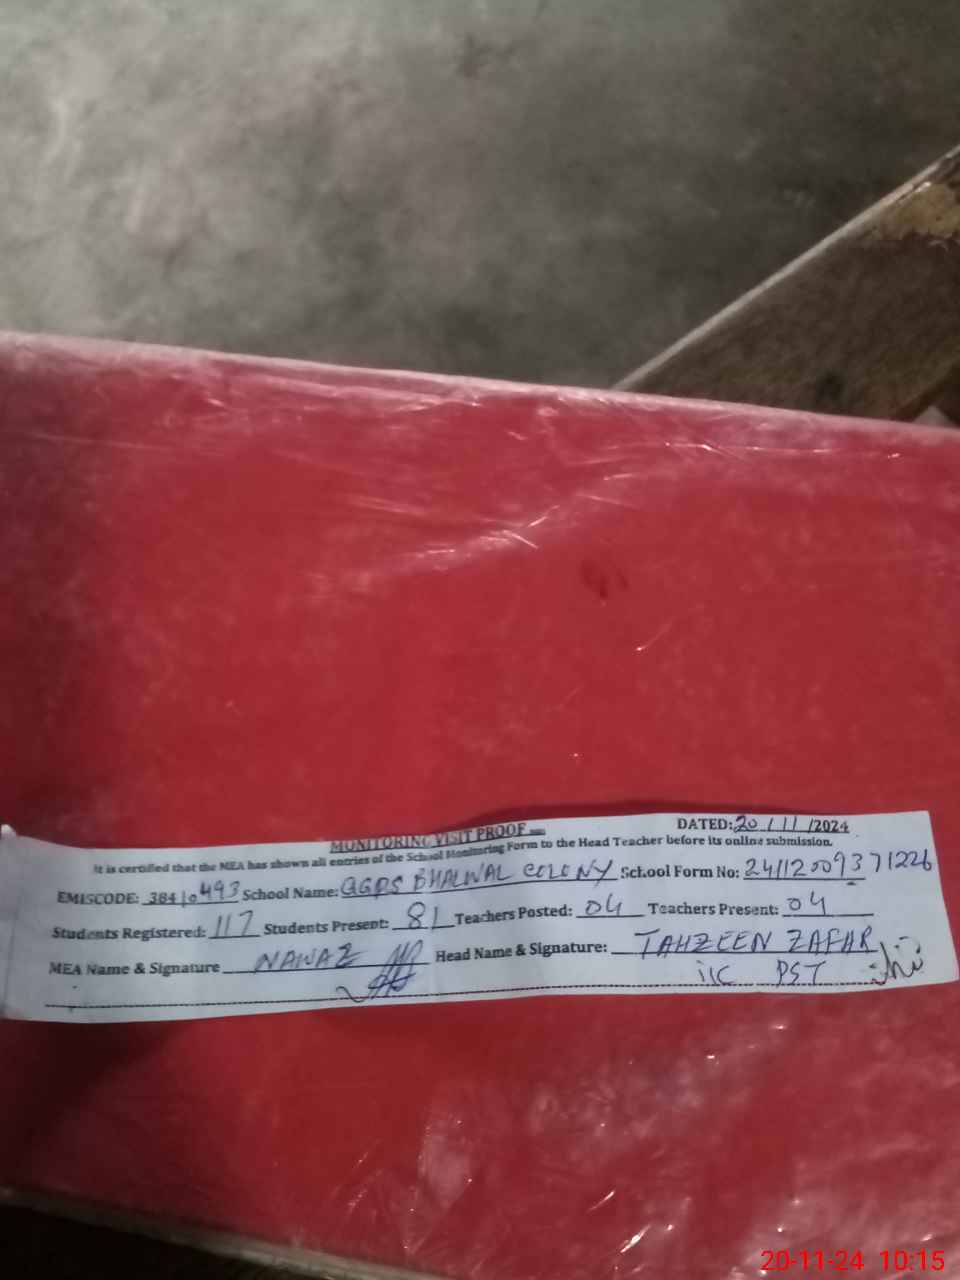 MONITORING VISIT PROOF
DATED: 20/11/2024
It is certified that the MEA has shown all entries of the School Monitoring Form to the Head Teacher before its online submission.
EMISCODE: 38410493 School Name: GGPS BHALWAL COLONY School Form No: 24112009371226
Students Registered: 117 Students Present: 81 Teachers Posted: 04 Teachers Present: 04
MEA Name & Signature NAWAZ Head Name & Signature: TAHZEEN ZAFAR
i/c PST
20-11-24 10:15